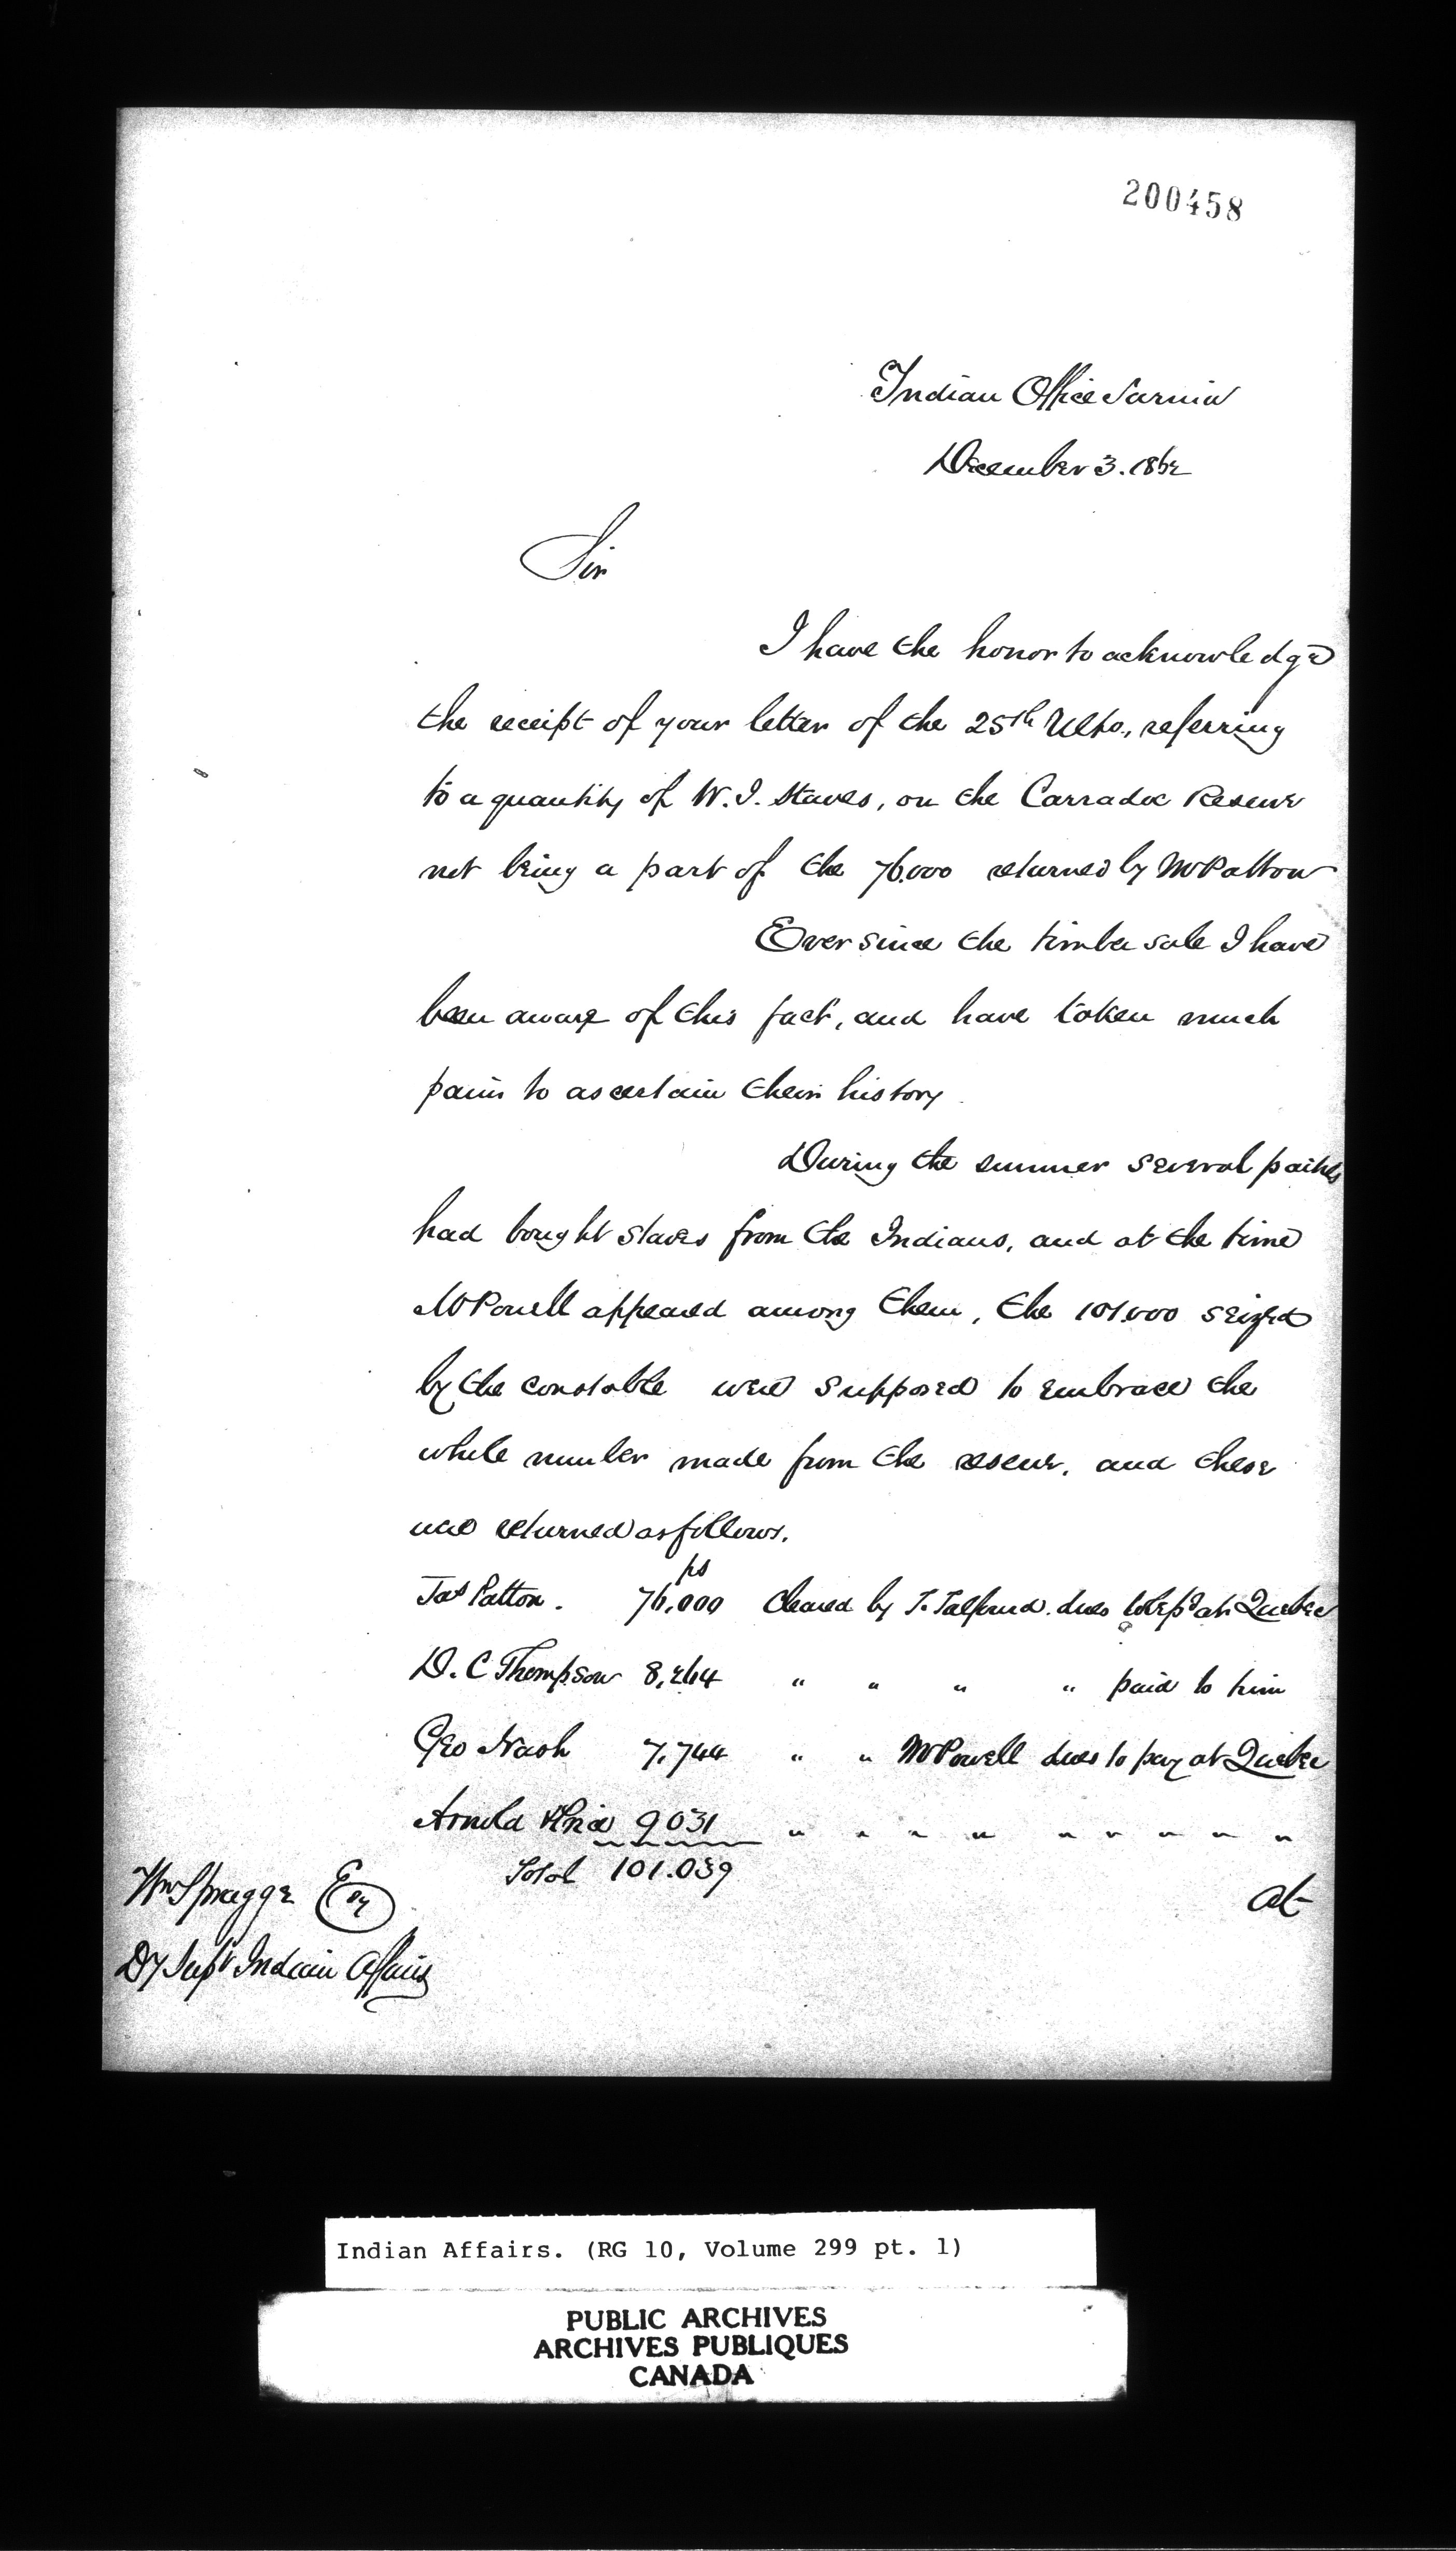 200458
Indian Office Sarnia
December 3. 1862
Sir
I have the honor to acknowledge
the receipt of your letter of the 25th Ulto., referring
to a quantity of W. I. Staves, on the Carradoc Reserve
not being a part of the 76.000 returned by Mr Patton
Ever since the timber sale I have
been aware of this fact, and have taken much
pains to ascertain their history.
During the summer several parties
had bought staves from the Indians, and at the time
Mr Powell appeared among them, the 101.000 seized
by the constable were supposed to embrace the
whole number made from the reserve, and these
was returned as follows.
ps
Jas Patton. 76,000 Cleared by F. Talfourd. dues to be pd at Quebec
D. C Thompson 8,264 " " " " paid to him
Geo Nash 7,744 " " Mr Powell dues to pay at Quebec
Arnold & Price 9031 " " " " " " " " "
Total 101.039
at
Wm Spragge Esqr
Dy Supt Indian Affairs
Indian Affairs. (RG 10, Volume 299 pt. 1)
PUBLIC ARCHIVES
ARCHIVES PUBLIQUES
CANADA